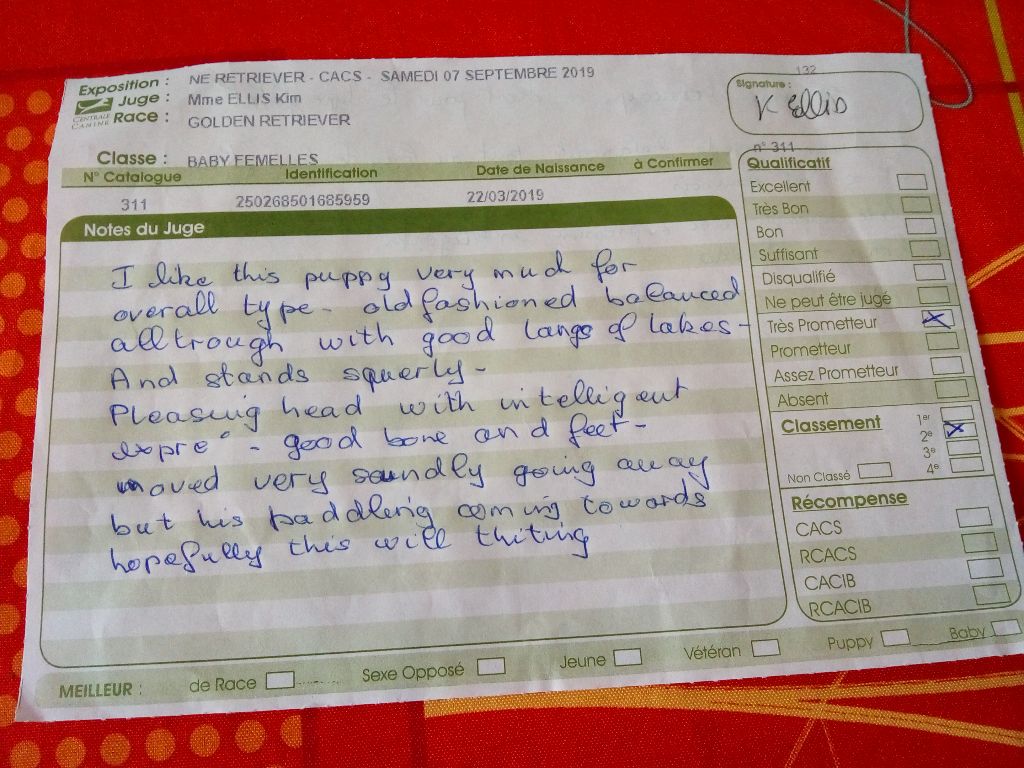 Exposition : NE RETRIEVER - CACS - SAMEDI 07 SEPTEMBRE 2019
Juge : Mme ELLIS Kim
Race : GOLDEN RETRIEVER
CENTRALE CANINE
Classe : BABY FEMELLES
N° Catalogue Identification Date de Naissance à Confirmer
311 250268501685959 22/03/2019
132
Signature :
K Ellis
n° 311
Notes du Juge
I like this puppy very much for
overall type - old fashioned balanced
alltrough with good langs of lakes -
And stands squerly -
Pleasing head with intelligent
expre° - good bone and feet -
moved very soundly going away
but his paddling coming towards
hopefully this will thiting
Qualificatif
Excellent
Très Bon
Bon
Suffisant
Disqualifié
Ne peut être jugé
Très Prometteur X
Prometteur
Assez Prometteur
Absent
Classement 1er
2e X
3e
Non Classé 4e
Récompense
CACS
RCACS
CACIB
RCACIB
MEILLEUR : de Race Sexe Opposé Jeune Vétéran Puppy Baby